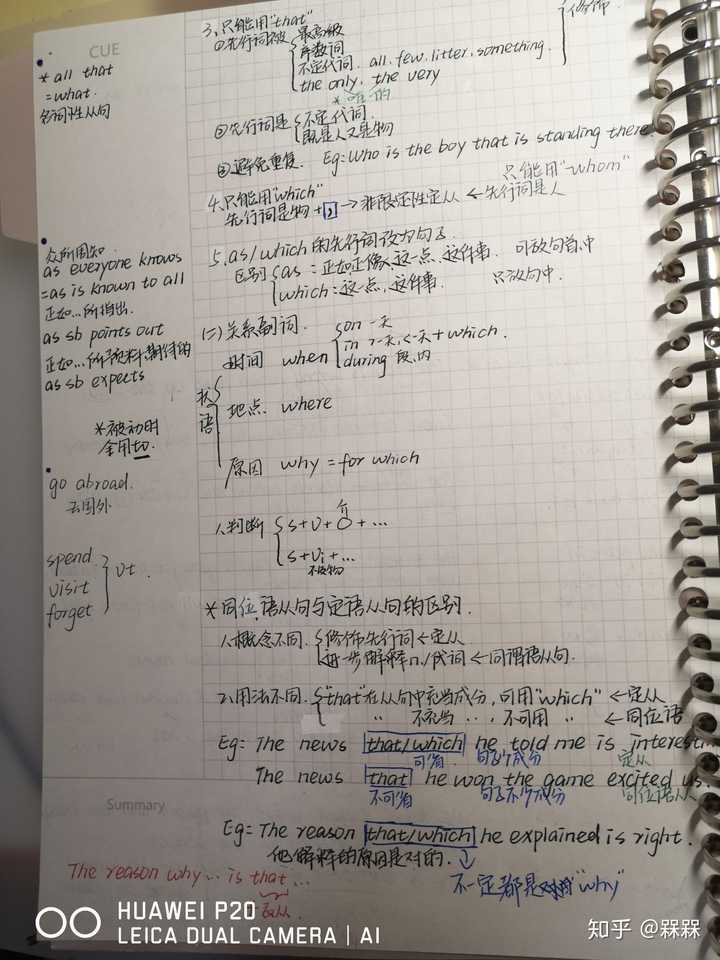 CUE
* all that
= what.
名词性从句
众所周知
as everyone knows
=as is known to all
正如...所指出
as sb points out
正如...所预料,期待的
as sb expects
*被动时
全用
go abroad.
去国外
spend
visit
forget
vt.
3,只能用"that"
①先行词被
最高级
序数词
不定代词. all. few. litter. something.
the only, the very
*唯一的
修饰
②先行词是
不定代词.
既是人又是物
③避免重复. Eg: Who is the boy that is standing there
4,只能用"which"
先行词是物+ , → 非限定性定从 ← 先行词是人
只能用"whom"
5, as/which 的先行词设为句子
区别
as: 正如,正像,这一点,这件事. 可放句首,中
which: 这一点,这件事. 只放句中.
(二)关系副词.
状语
时间 when
on 一天
+ which.
during 段,内
地点. where
原因 why = for which
1.判断
s+v+O+...
s+vi+...
不及物
*同位语从句与定语从句的区别.
1.概念不同.
修饰先行词 ← 定从
进一步解释n./代词 ← 同谓语从句.
2.用法不同.
"that"在从句中充当成分,可用"which" ← 定从
〃 不充当 ..., 不可用 〃 ← 同位语
Eg: The news that/which he told me is interesti
可省 句子个成分 定从
The news that he won the game excited us.
不可省 句子不个成分 同位语从
Summary
Eg: The reason that/which he explained is right.
他解释的原因是对的.
不一定都是 "why"
The reason why... is that...
表从.
HUAWEI P20
LEICA DUAL CAMERA | AI
知乎 @槑槑